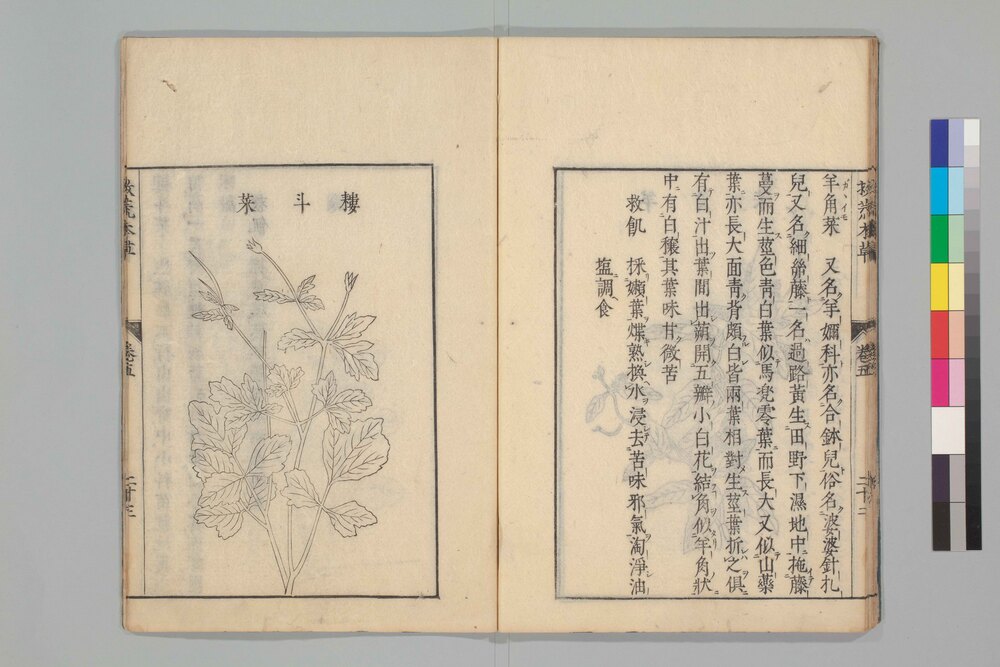 羊角菜　又名羊嬭科亦名合鉢兒俗名婆婆針扎
兒又名細絲藤一名過路黃生田野下濕地中拖藤
蔓而生莖色青白葉似馬兜零葉而長大又似山藥
葉亦長大面青背頗白皆兩葉相對生莖葉折之俱
有白汁出葉間出蒴開五瓣小白花結角似羊角狀
中有白穰其葉味甘微苦
救飢　採嫩葉煠熟換水浸去苦味邪氣淘淨油
塩調食
救荒本草
卷五
二十二
樓斗菜
救荒本草
卷五